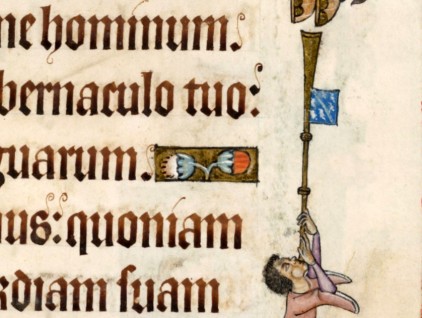 ne hominum.
bernaculo tuo:
guarum.
nus: quoniam
rdiam ſuam